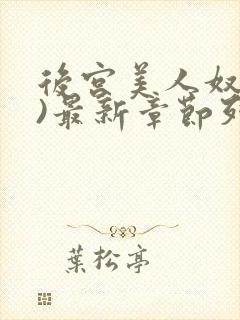 後宮美人奴
)最新章節列
葉松亭